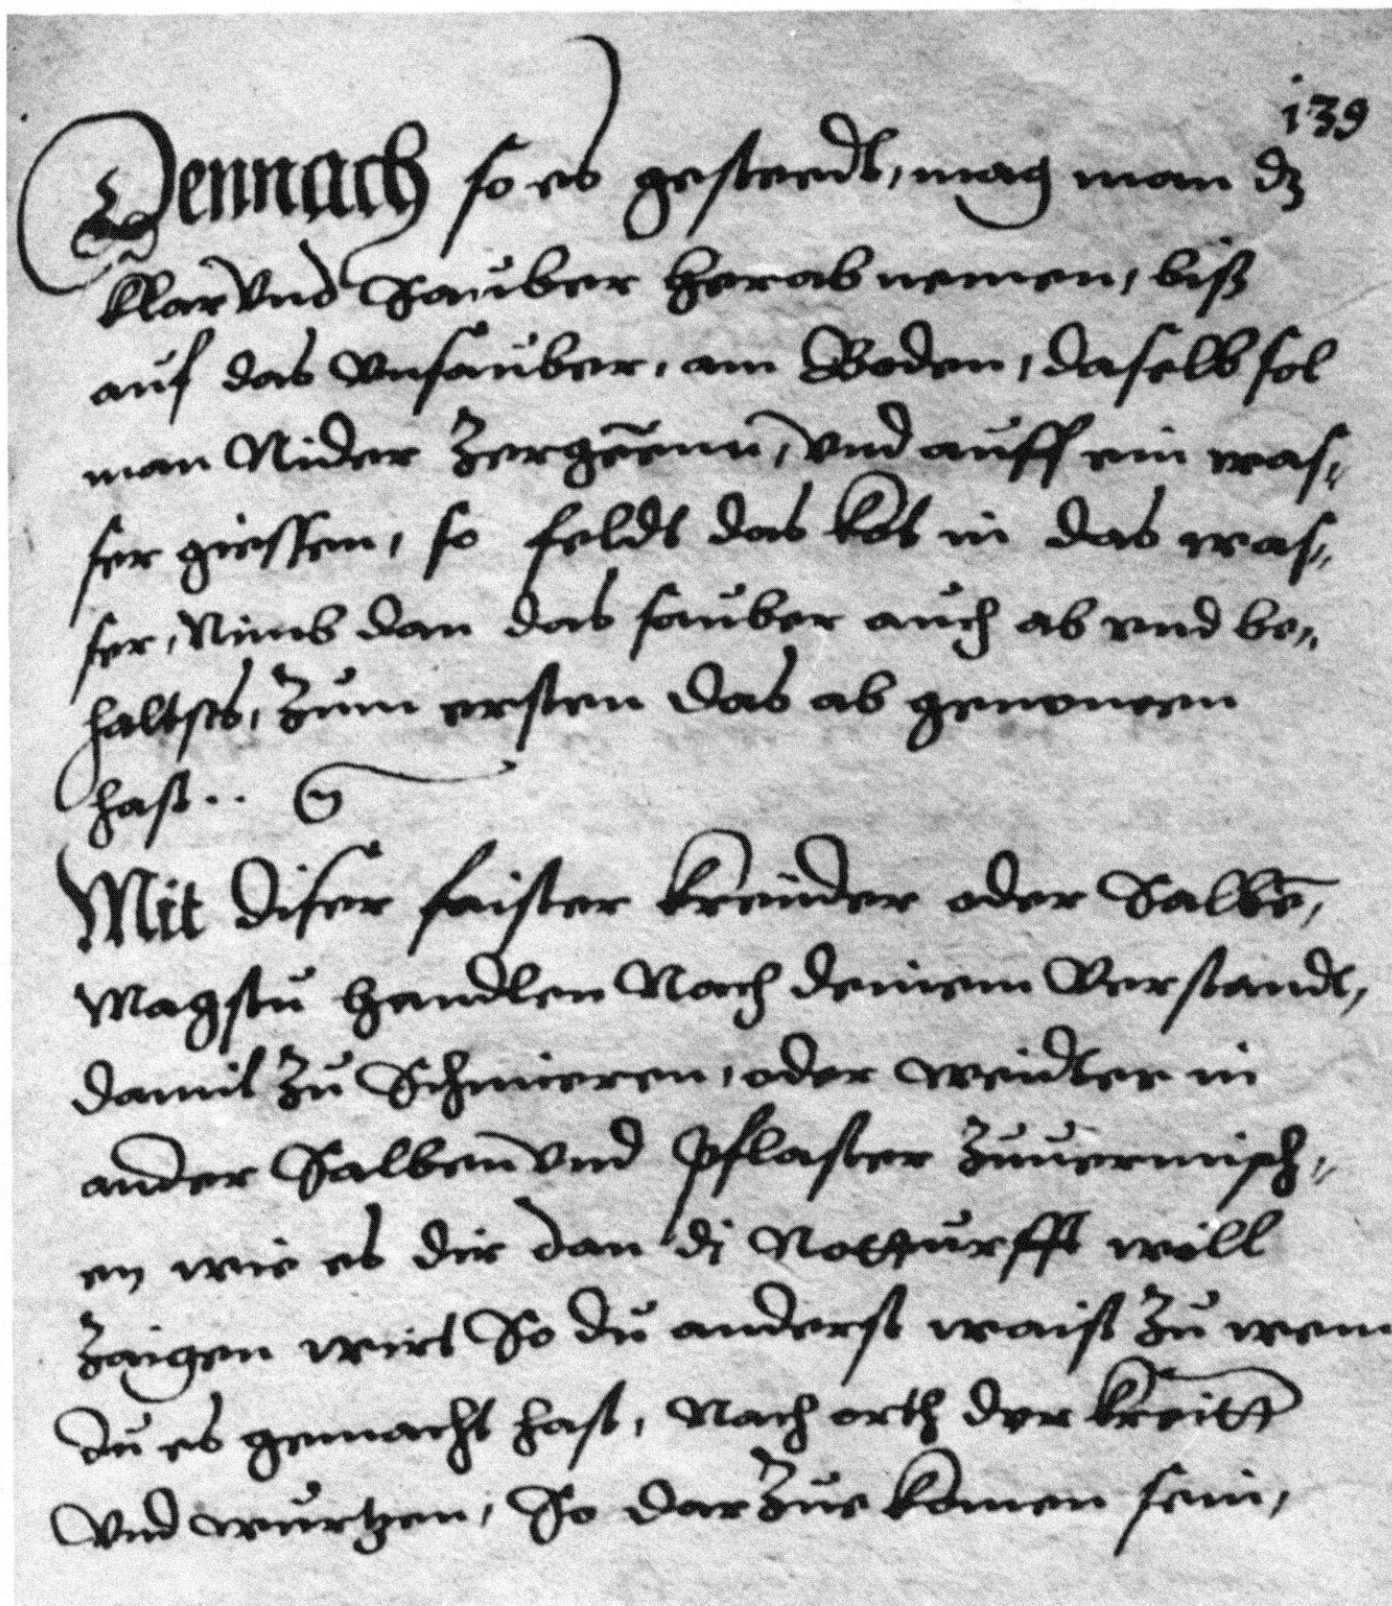 139
Dennach so es gesteedt, mag man dz
klar vnd Sauber herab nemen, biß
auf das vnsauber, am Boden, daselb sol
man Nider Zergeenn, vnd auff ein was„
ser giessen, so feldt das kot in das was„
ser, Nimb dan das sauber auch ab vnd be„
haltses, Zum ersten das ab genomen
hast..
Mit diser faister kreüder oder Salbē,
Magstu handlen Nach deinem Verstandt,
damit Zu Schmieren, oder weidter in
ander Salben vnd Pflaster Zuuermisch„
en wie es dir dan di Notturfft woll
Zaigen wirt So du anderst waist Zu wem
du es gemacht hast, Nach orth der kreitt
Vnd wurtzen, So dar Zue komen sein,